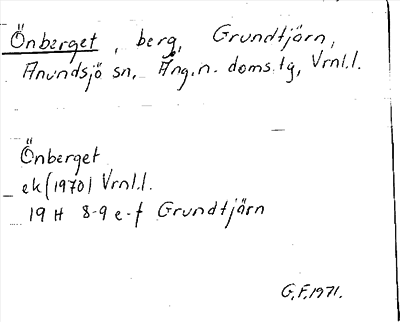 Önberget, berg, Grundtjärn,
Anundsjö sn, Ång.n. doms.lg, Vrnl.l.
Önberget
ek (1970) Vrnl.l.
19 H 8-9 e-f Grundtjärn
G.F. 1971.